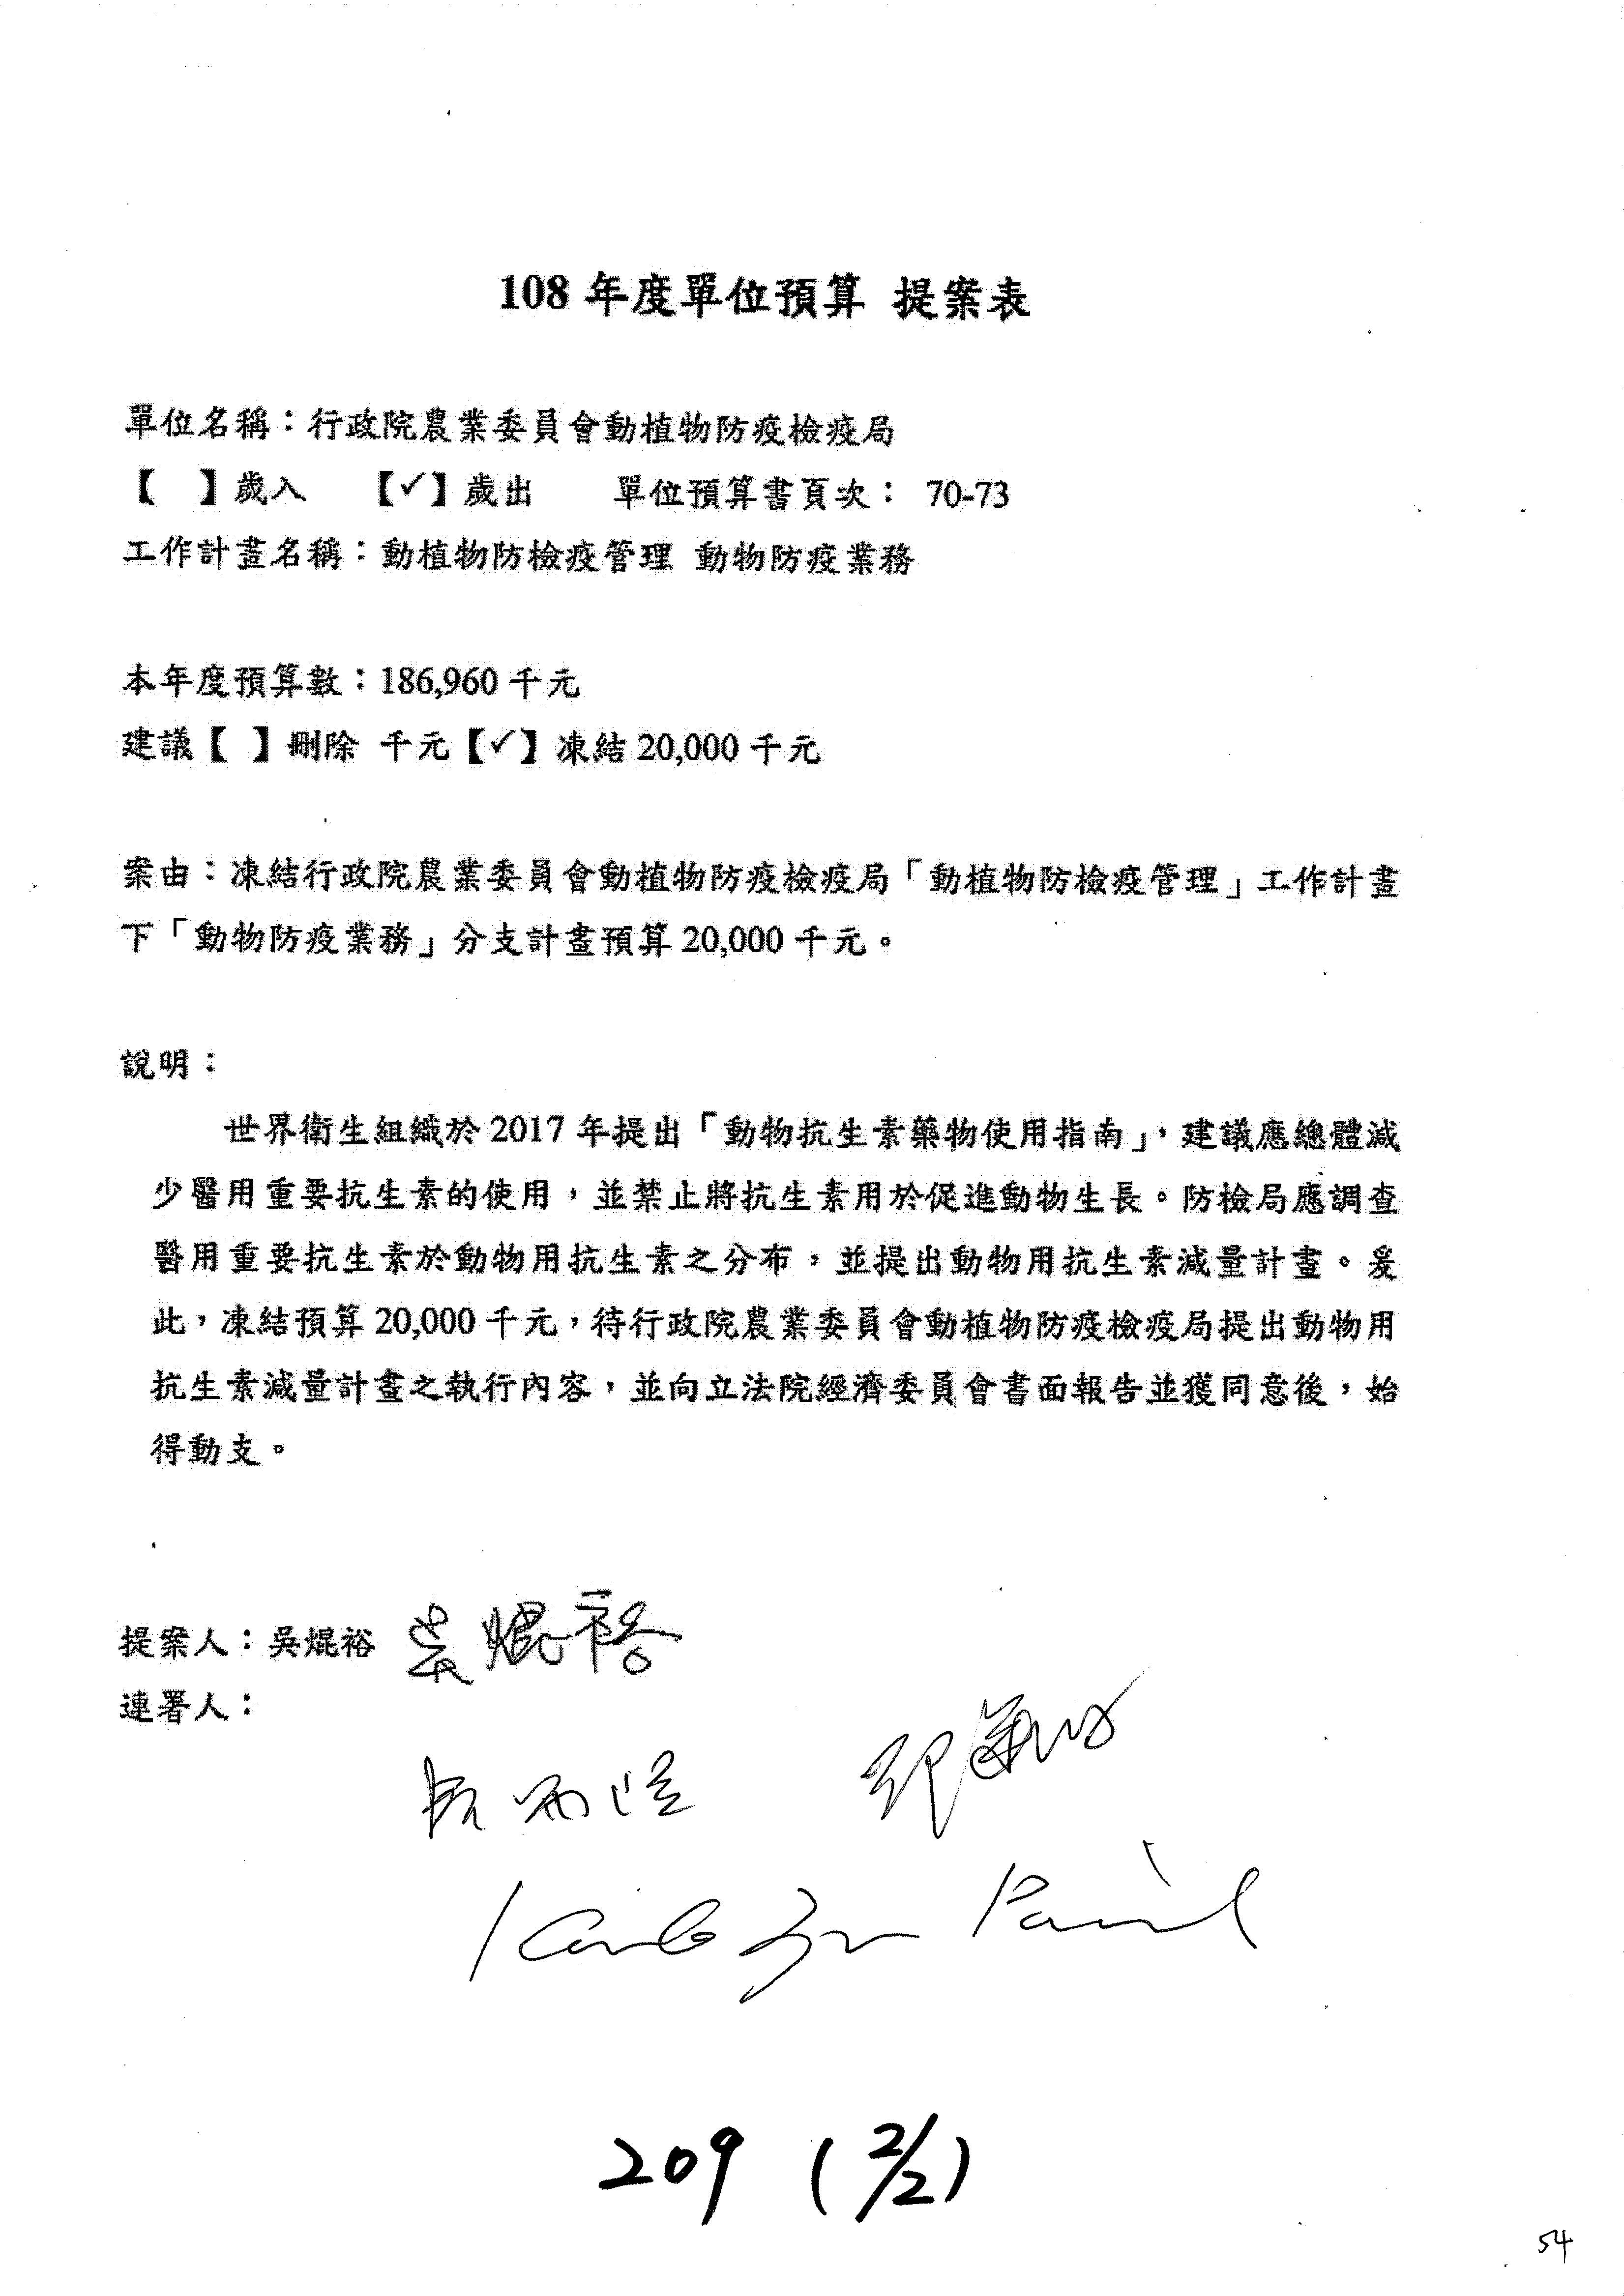 108 年度單位預算 提案表
單位名稱：行政院農業委員會動植物防疫檢疫局
【 】歲入 【✓】歲出 單位預算書頁次： 70-73
工作計畫名稱：動植物防檢疫管理 動物防疫業務
本年度預算數：186,960 千元
建議【 】刪除 千元【✓】凍結 20,000 千元
案由：凍結行政院農業委員會動植物防疫檢疫局「動植物防檢疫管理」工作計畫
下「動物防疫業務」分支計畫預算 20,000 千元。
說明：
世界衛生組織於 2017 年提出「動物抗生素藥物使用指南」，建議應總體減
少醫用重要抗生素的使用，並禁止將抗生素用於促進動物生長。防檢局應調查
醫用重要抗生素於動物用抗生素之分布，並提出動物用抗生素減量計畫。爰
此，凍結預算 20,000 千元，待行政院農業委員會動植物防疫檢疫局提出動物用
抗生素減量計畫之執行內容，並向立法院經濟委員會書面報告並獲同意後，始
得動支。
提案人：吳焜裕 吳焜裕
連署人：
209 (2/2)
54